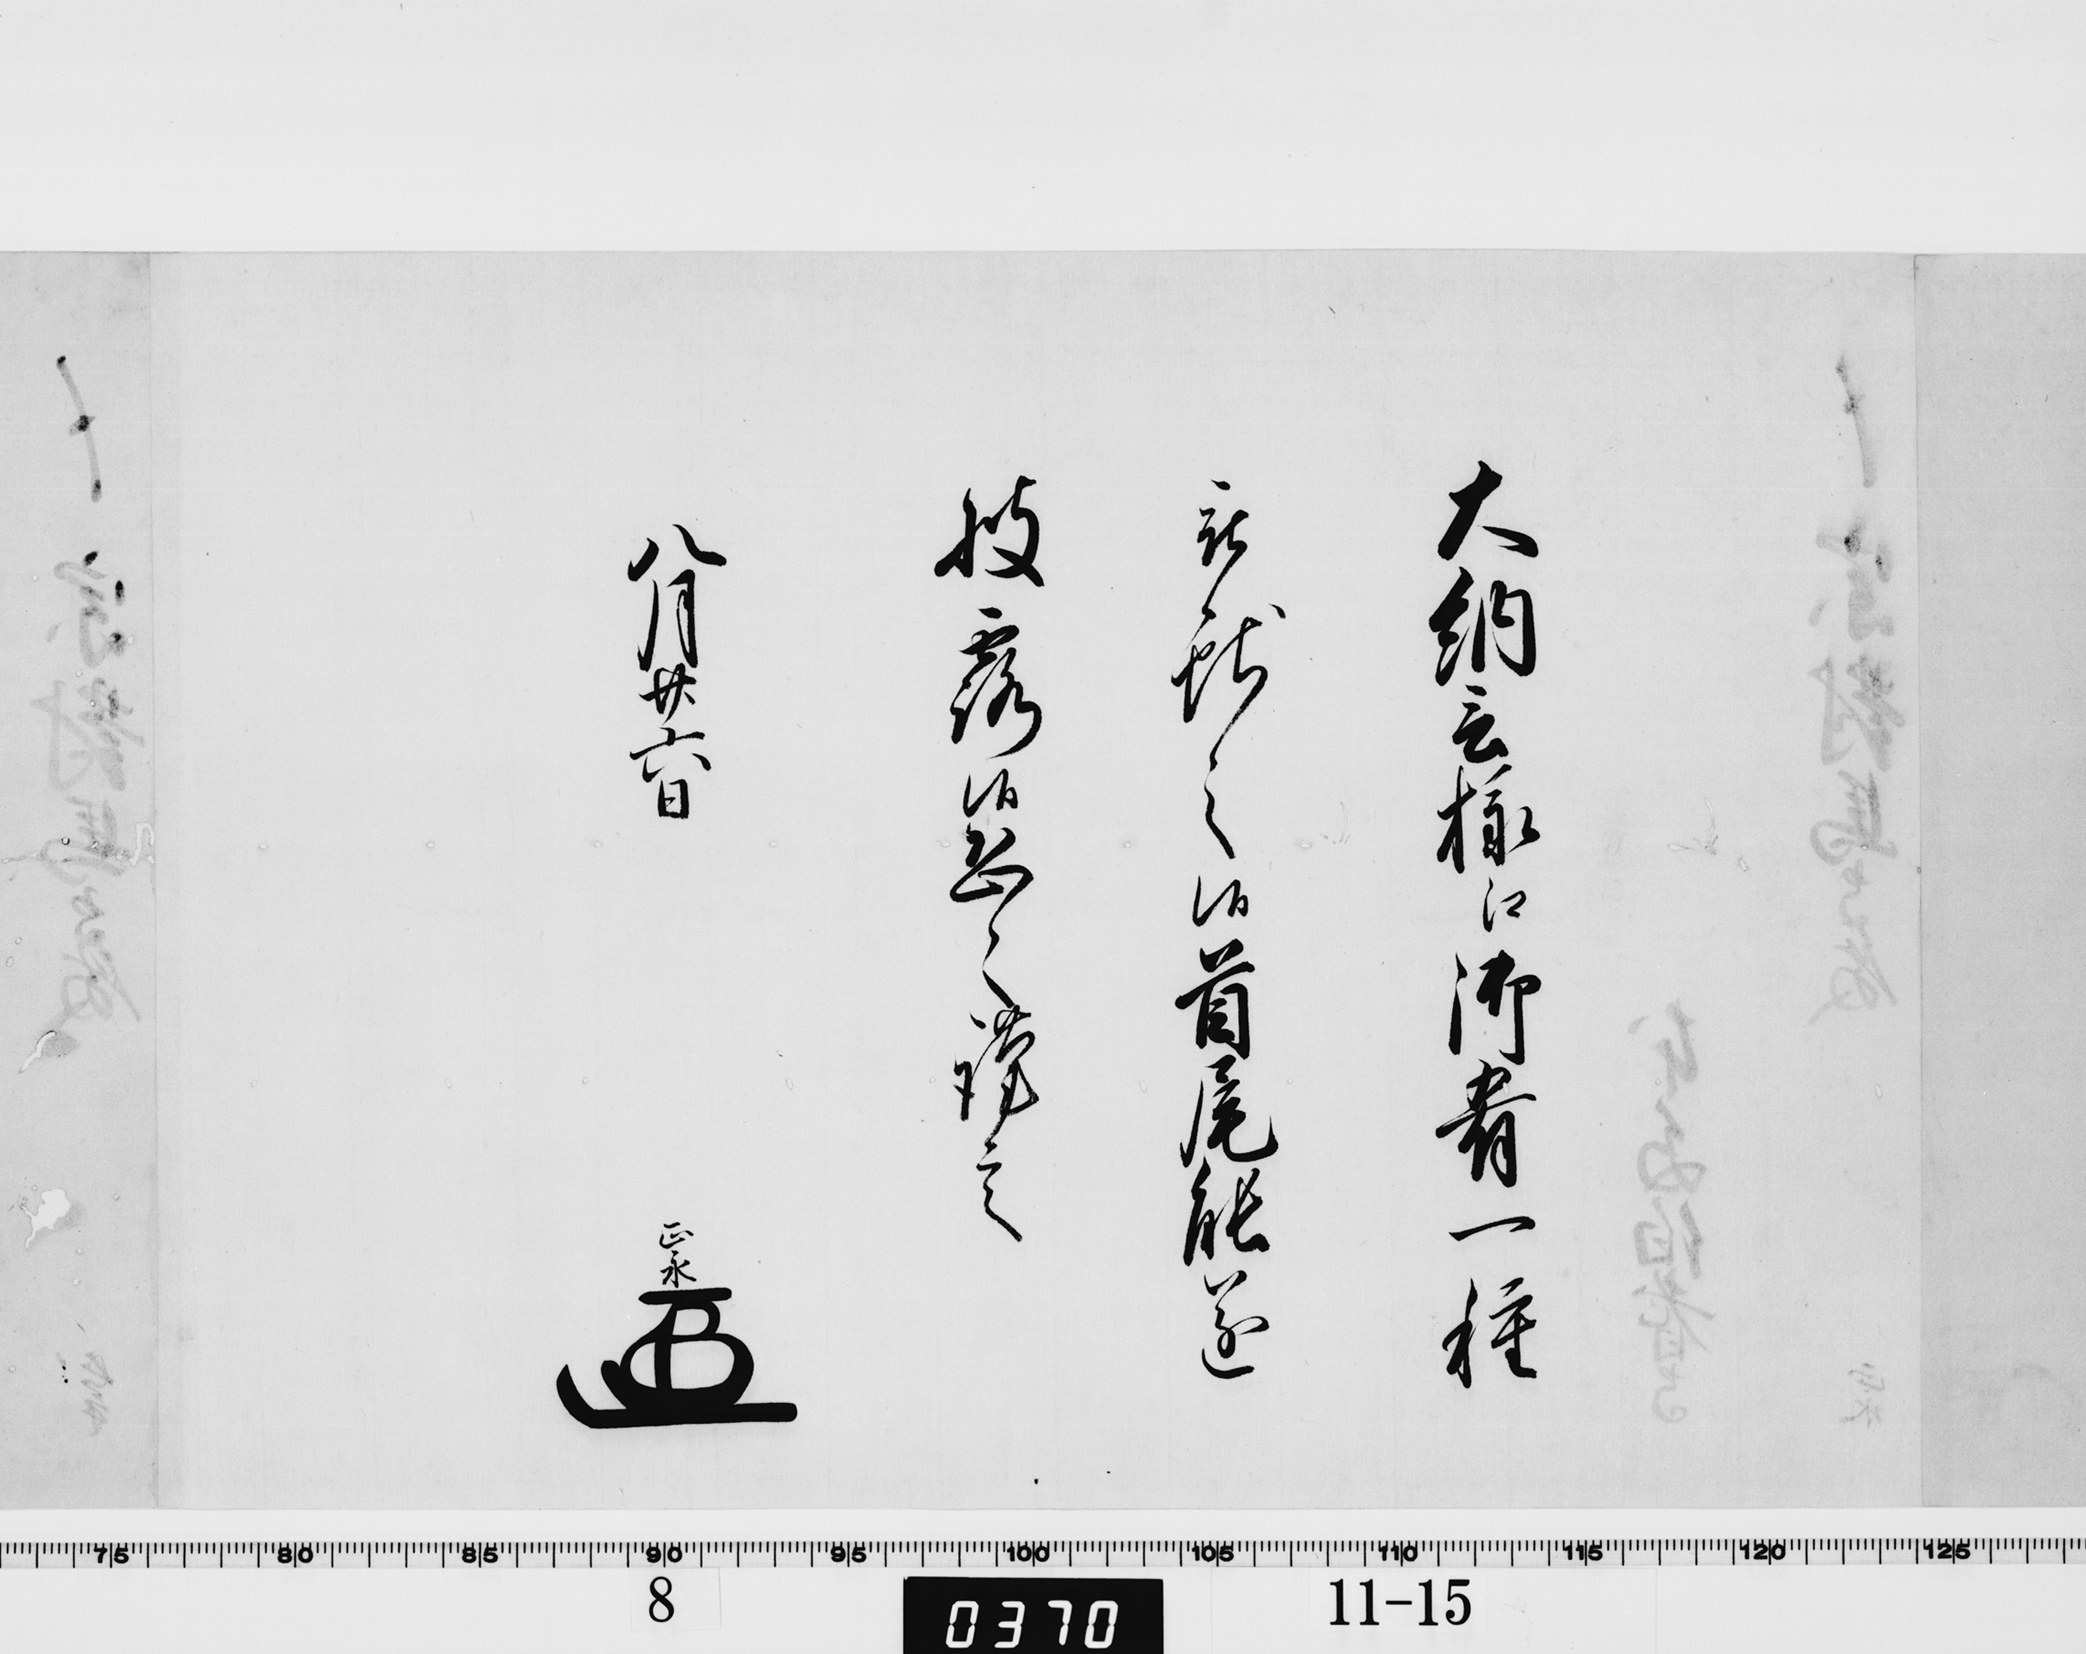 大納言様江御肴一種
就献之候首尾能遂
披露候恐々謹言
八月廿六日
正永
75 80 85 90 95 100 105 110 115 120 125
8
0370
11-15